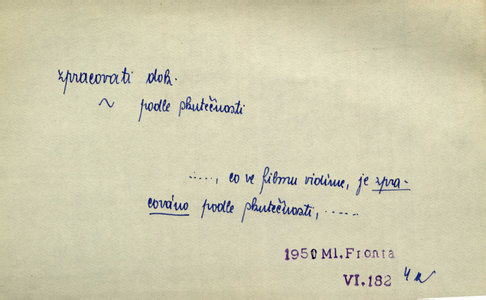 zpracovati dok.
~ podle skutečnosti
....., co ve filmu vidíme, je zpra-
cováno podle skutečnosti, .....
1950 Ml. Fronta
VI. 182